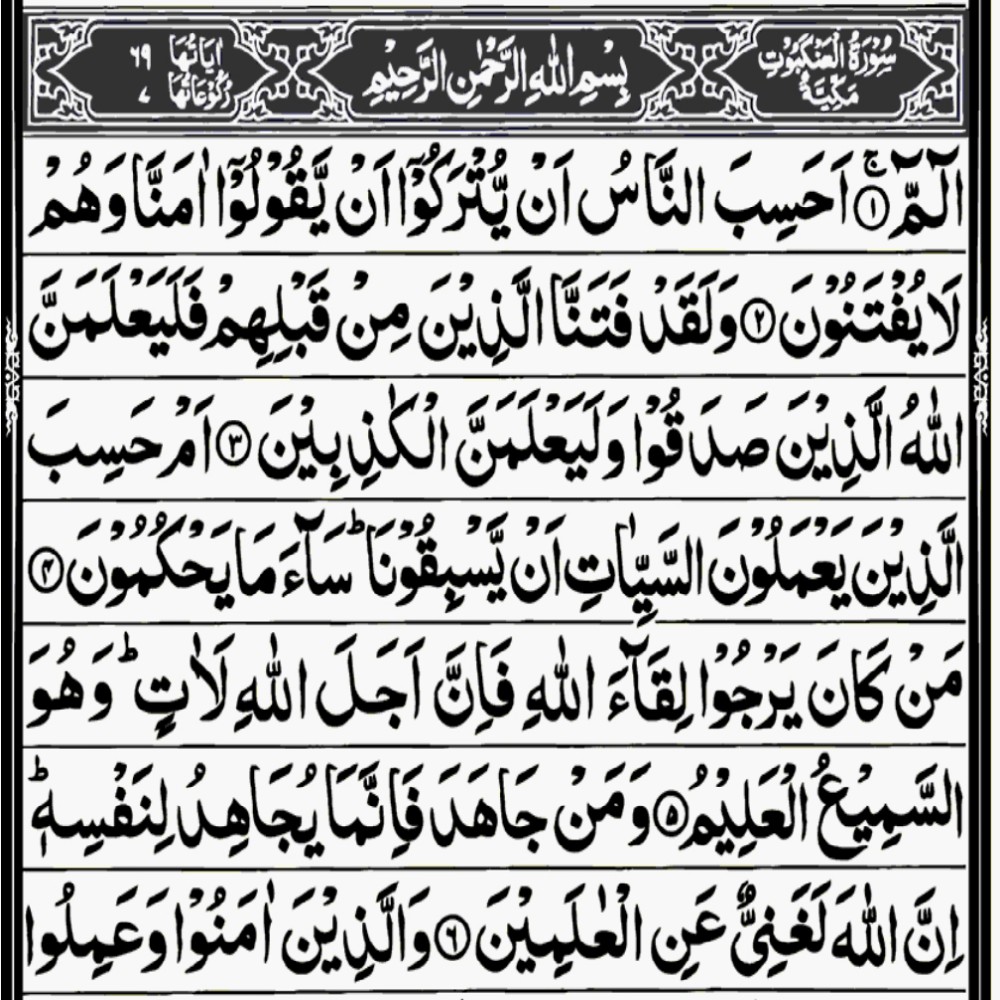 سُوْرَةُ الْعَنْكَبُوْتِ مَكِّيَّةٌ
بِسْمِ اللّٰهِ الرَّحْمٰنِ الرَّحِيْمِ
اٰيَاتُهَا ٦٩ رُكُوْعَاتُهَا ٧
الٓمّٓ ۚ﴿۱﴾ اَحَسِبَ النَّاسُ اَنْ يُّتْرَكُوْۤا اَنْ يَّقُوْلُوْۤا اٰمَنَّا وَهُمْ
لَا يُفْتَنُوْنَ ﴿۲﴾ وَلَقَدْ فَتَنَّا الَّذِيْنَ مِنْ قَبْلِهِمْ فَلَيَعْلَمَنَّ
اللّٰهُ الَّذِيْنَ صَدَقُوْا وَلَيَعْلَمَنَّ الْكٰذِبِيْنَ ﴿۳﴾ اَمْ حَسِبَ
الَّذِيْنَ يَعْمَلُوْنَ السَّيِّاٰتِ اَنْ يَّسْبِقُوْنَا ؕ سَآءَ مَا يَحْكُمُوْنَ ﴿۴﴾
مَنْ كَانَ يَرْجُوْا لِقَآءَ اللّٰهِ فَاِنَّ اَجَلَ اللّٰهِ لَاٰتٍ ؕ وَهُوَ
السَّمِيْعُ الْعَلِيْمُ ﴿۵﴾ وَمَنْ جَاهَدَ فَاِنَّمَا يُجَاهِدُ لِنَفْسِهٖ ؕ
اِنَّ اللّٰهَ لَغَنِىٌّ عَنِ الْعٰلَمِيْنَ ﴿۶﴾ وَالَّذِيْنَ اٰمَنُوْا وَعَمِلُوا